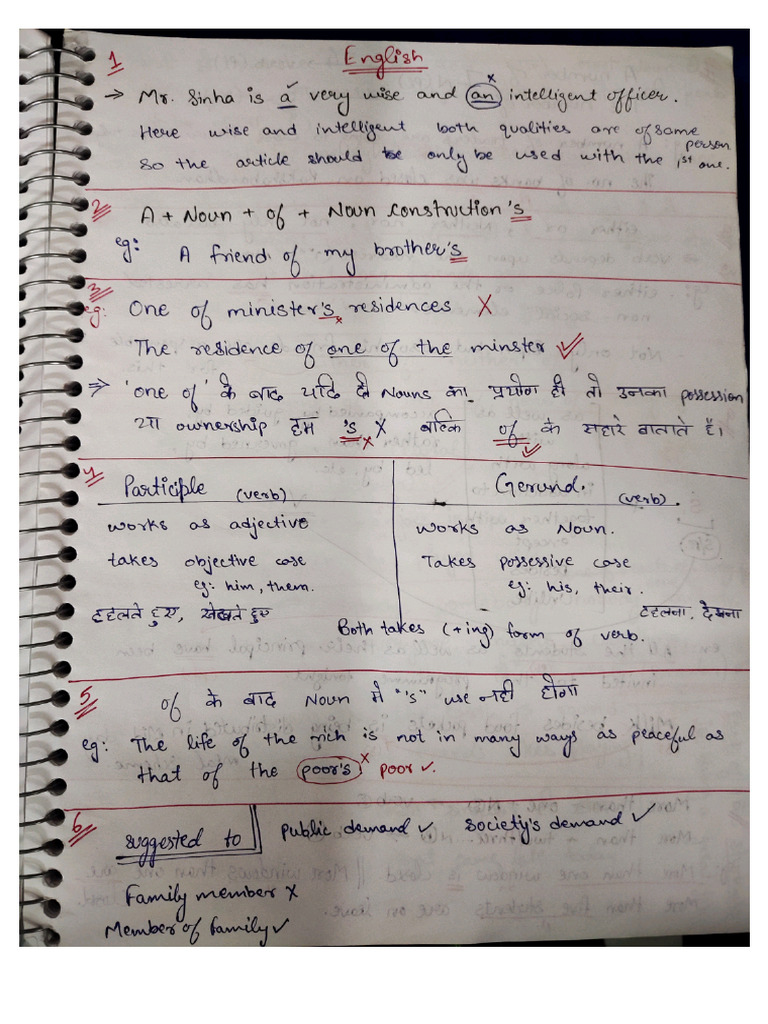 English
1
→ Mr. Sinha is a ✓ very wise and an x intelligent officer.
Here wise and intelligent both qualities are of same person
So the article should be only be used with the 1st one.
2 A + Noun + of + Noun construction's
eg: A friend of my brother's
3
eg: One of minister's x residences X
The residence of one of the minster ✓
⇒ 'one of' के बाद यदि दो Nouns का प्रयोग हो तो उनका possession
या ownership हम 's x X बल्कि of ✓ के सहारे बाताते हैं।
4 Participle (verb) Gerund. (verb).
works as adjective works as Noun.
takes objective case Takes possessive case
eg: him, them. eg: his, their.
टहलते हुए, खेलते हुए टहलना, देखना
Both takes (+ing) form of verb.
5 of के बाद Noun मे "'s" use नही होगा
eg: The life of the rich is not in many ways as peaceful as
that of the poor's x poor ✓.
6 suggested to public demand ✓ society's demand ✓
Family member X
Member of family ✓